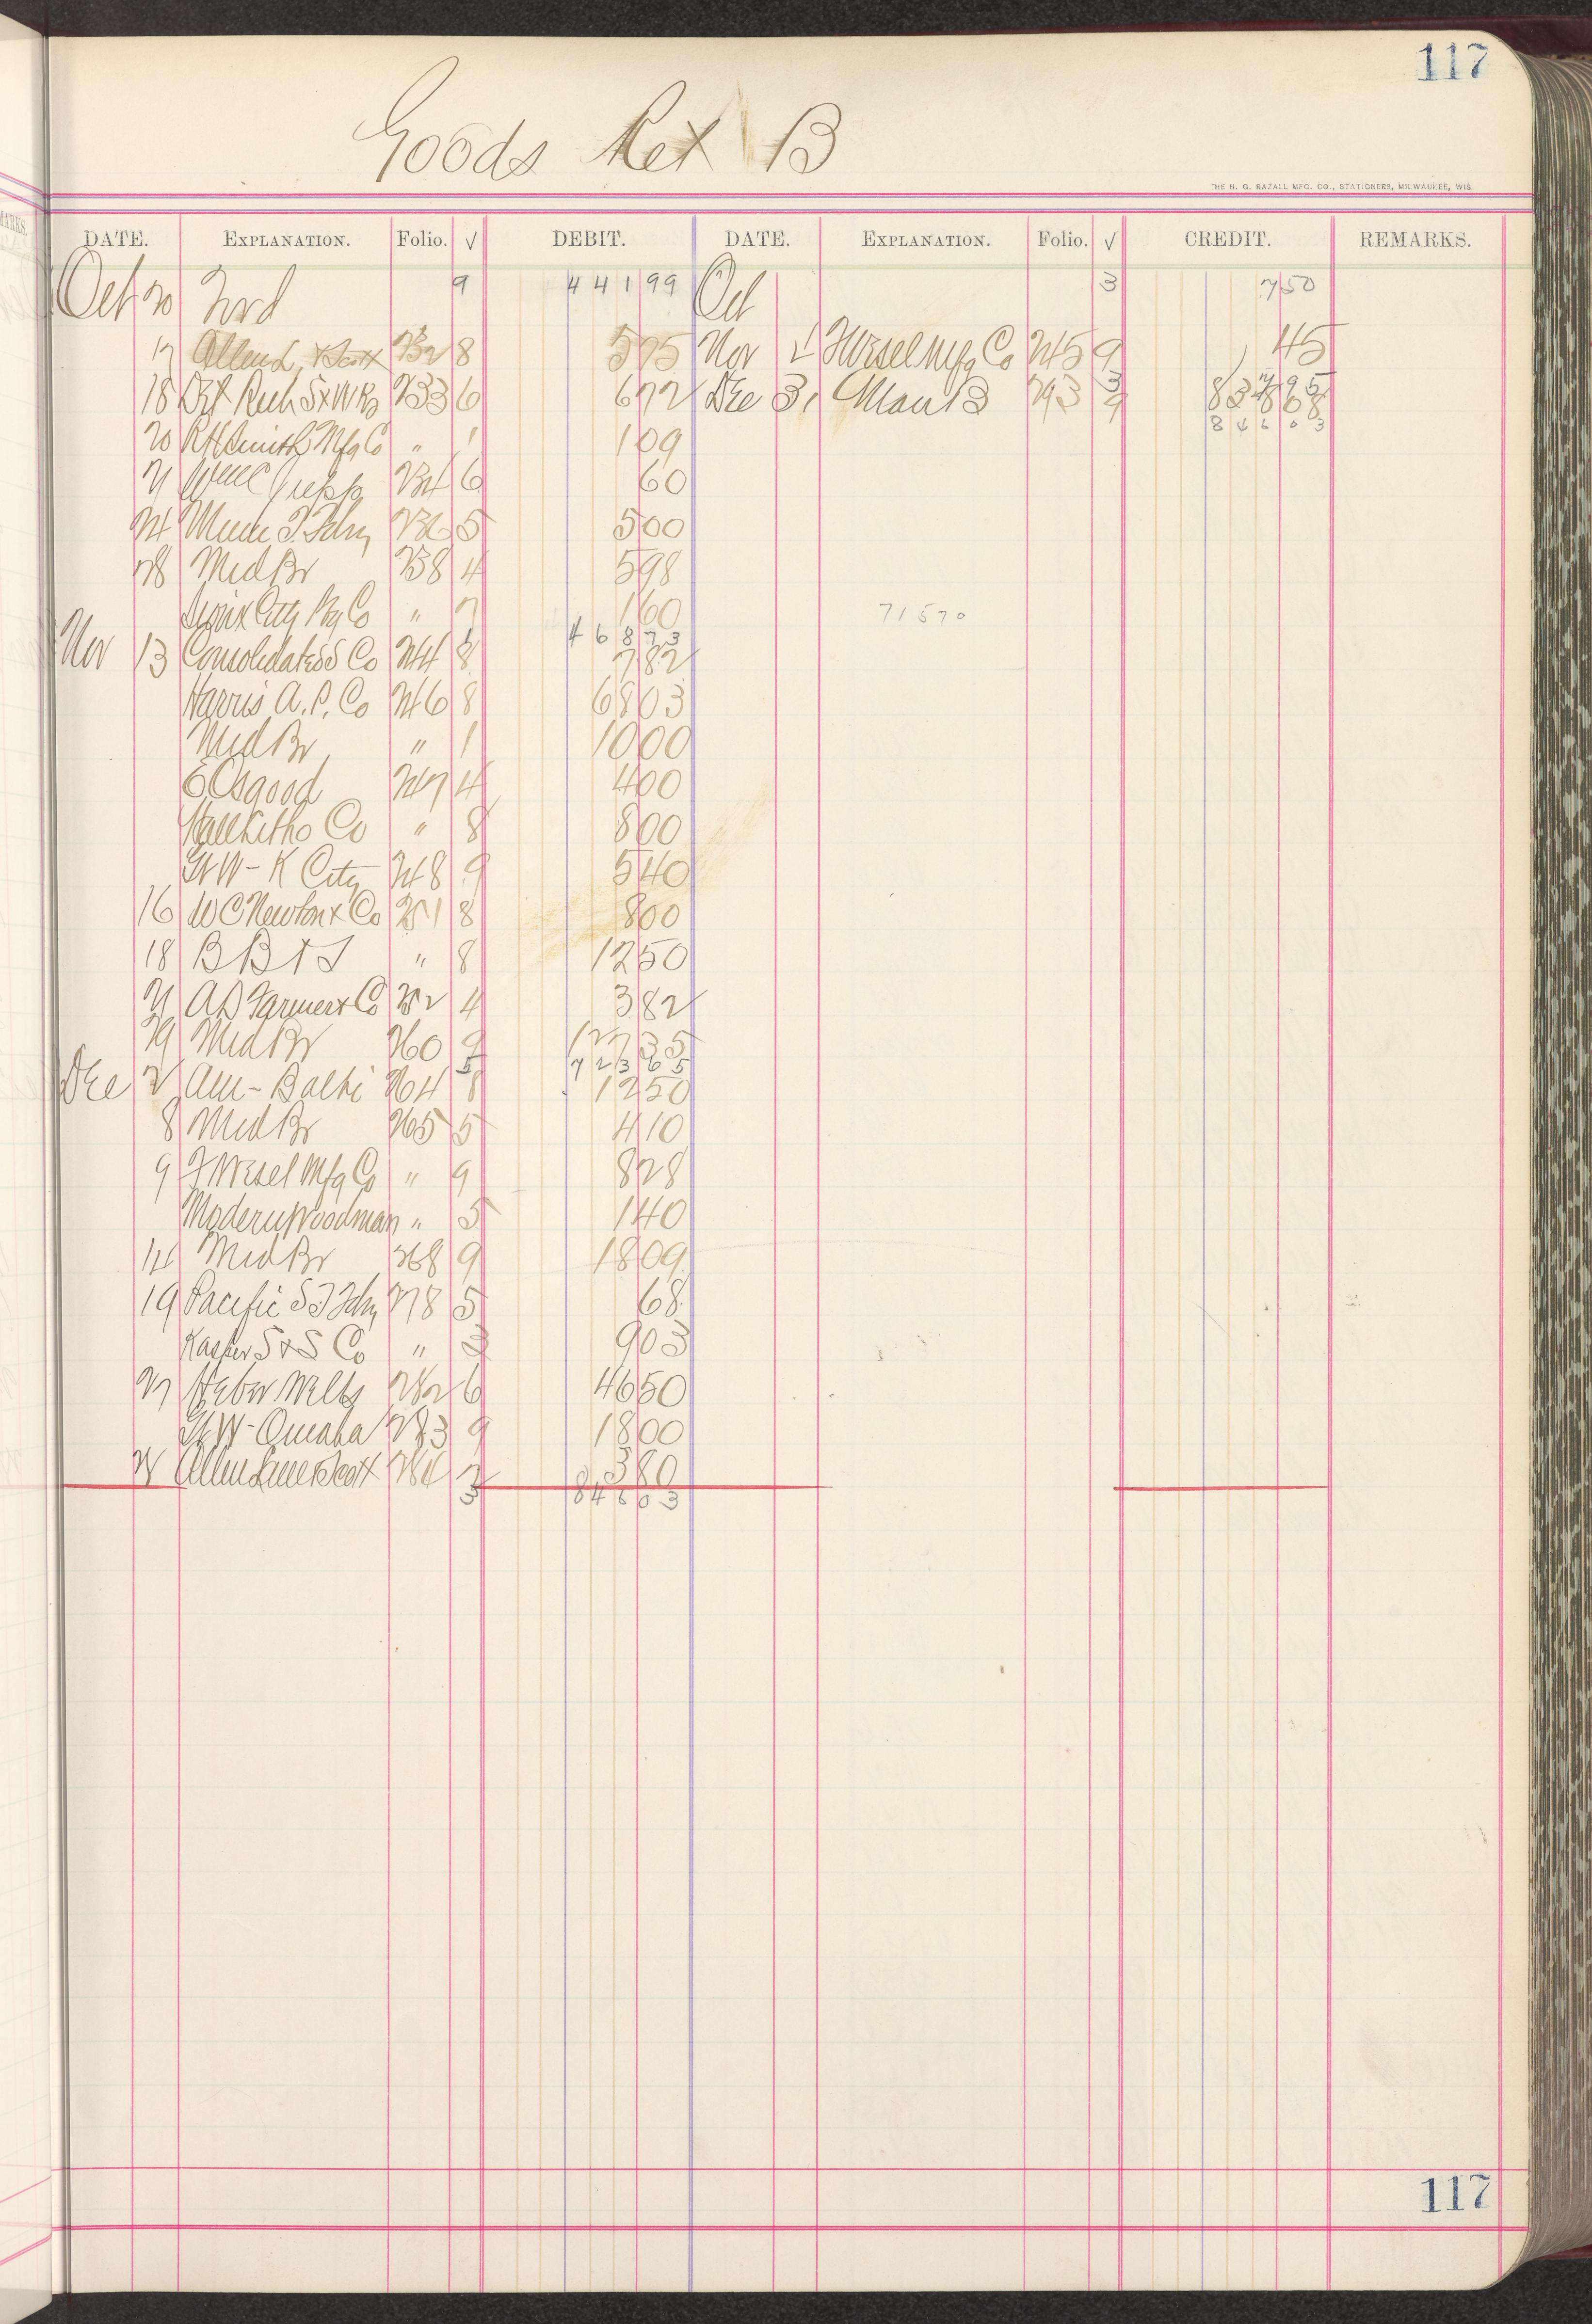 117
Goods Ret B
THE H. G. RAZALL MFG. CO., STATIONERS, MILWAUKEE, WIS.
DATE. EXPLANATION. Folio. √ DEBIT. DATE. EXPLANATION. Folio. √ CREDIT. REMARKS.
Oct 20 Ford 9 441 99 Oct 3 7 50
17 Allen L & Scott 232 8 5 75 Nov 2 F Wesel Mfg Co 245 9 45
18 Rich S & W Ks 233 6 6 72 Dec 31 Man B 293 838 68
20 R H Smith Mfg Co " 1 1 09 846 03
21 234 6 60
24 T. Fdry 236 5 5 00
28 Med Br 238 4 5 98
Sioux City Co " 7 1 60 715 70
468 73
Nov 13 Consolidated S Co 244 8 7 82
Harris A. P. Co 246 8 68 03
Med Br " 1 10 00
E Osgood 247 4 4 00
Hall Litho Co " 8 8 00
G W - K City 248 9 5 40
16 W C Newton & Co 251 8 8 00
18 B B & S " 8 12 50
21 A D Farmer & Co 252 4 3 82
29 Med Br 260 9 127 35
723 65
Dec 2 Am - Balti 264 8 12 50
8 Med Br 265 5 4 10
9 F Wesel Mfg Co " 9 8 28
Modern Woodman " 5 1 40
14 Med Br 268 9 18 09
19 Pacific S T Fdry 278 5 68
Kasper S & S Co " 3 9 03
27 Heber Wells 282 6 46 50
G W - Omaha 283 9 18 00
Allen Lane & Scott 2 3 80
3 846 03
117